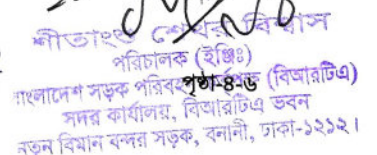 শীতাংশু শেখর বিশ্বাস
পরিচালক (ইঞ্জিঃ)
বাংলাদেশ সড়ক পরিবহণ (বিআরটিএ)
পৃষ্ঠা-৪-৬
সদর কার্যালয়, বিআরটিএ ভবন
নতুন বিমান বন্দর সড়ক, বনানী, ঢাকা-১২১২।